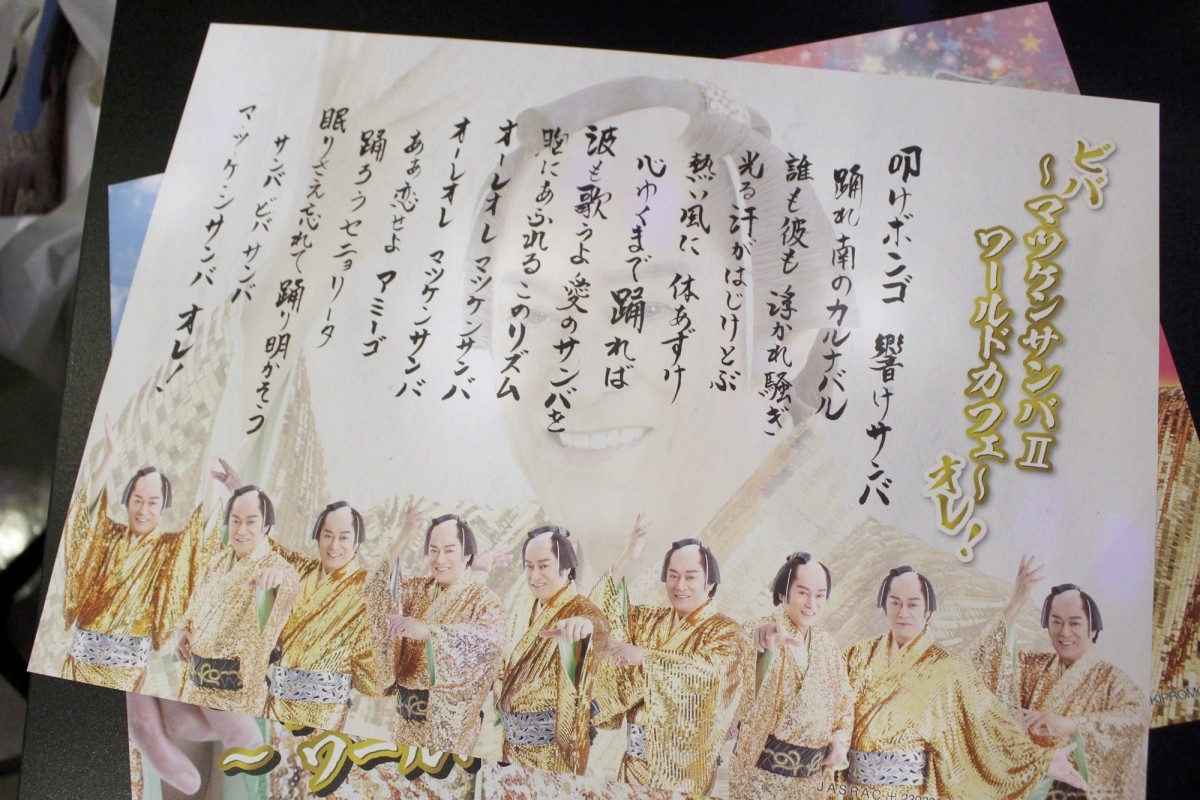 ビバ
~マツケンサンバⅡ
ワールドカフェ~
オレ!
叩けボンゴ 響けサンバ
踊れ南のカルナバル
誰も彼も 浮かれ騒ぎ
光る汗がはじけとぶ
熱い風に 体あずけ
心ゆくまで踊れば
波も歌うよ 愛のサンバを
胸にあふれるこのリズム
オーレオレ マツケンサンバ
オーレオレ マツケンサンバ
ああ恋せよ アミーゴ
踊ろう セニョリータ
眠りさえ忘れて 踊り明かそう
サンバ ビバ サンバ
マツケンサンバ オレ!
~ワール
JASRAC出